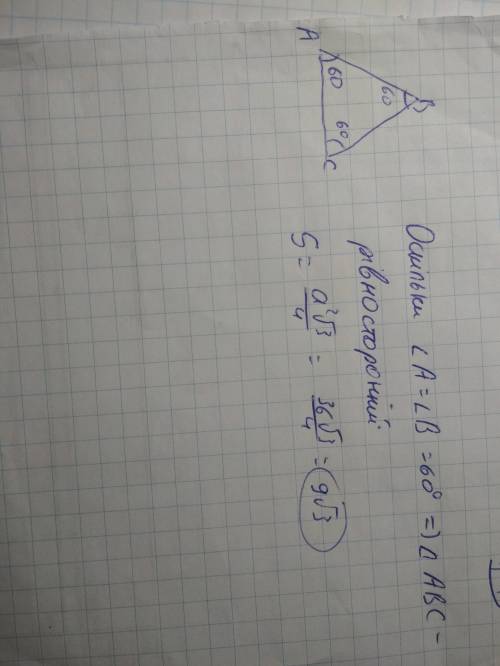 A
B
C
60
60
60
Оскільки ∠A = ∠B = 60° => △ABC –
рівносторонній
S = a²√3/4 = 36√3/4 = 9√3